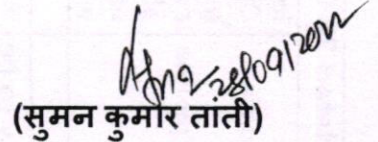 28/09/2022
(सुमन कुमार तांती)